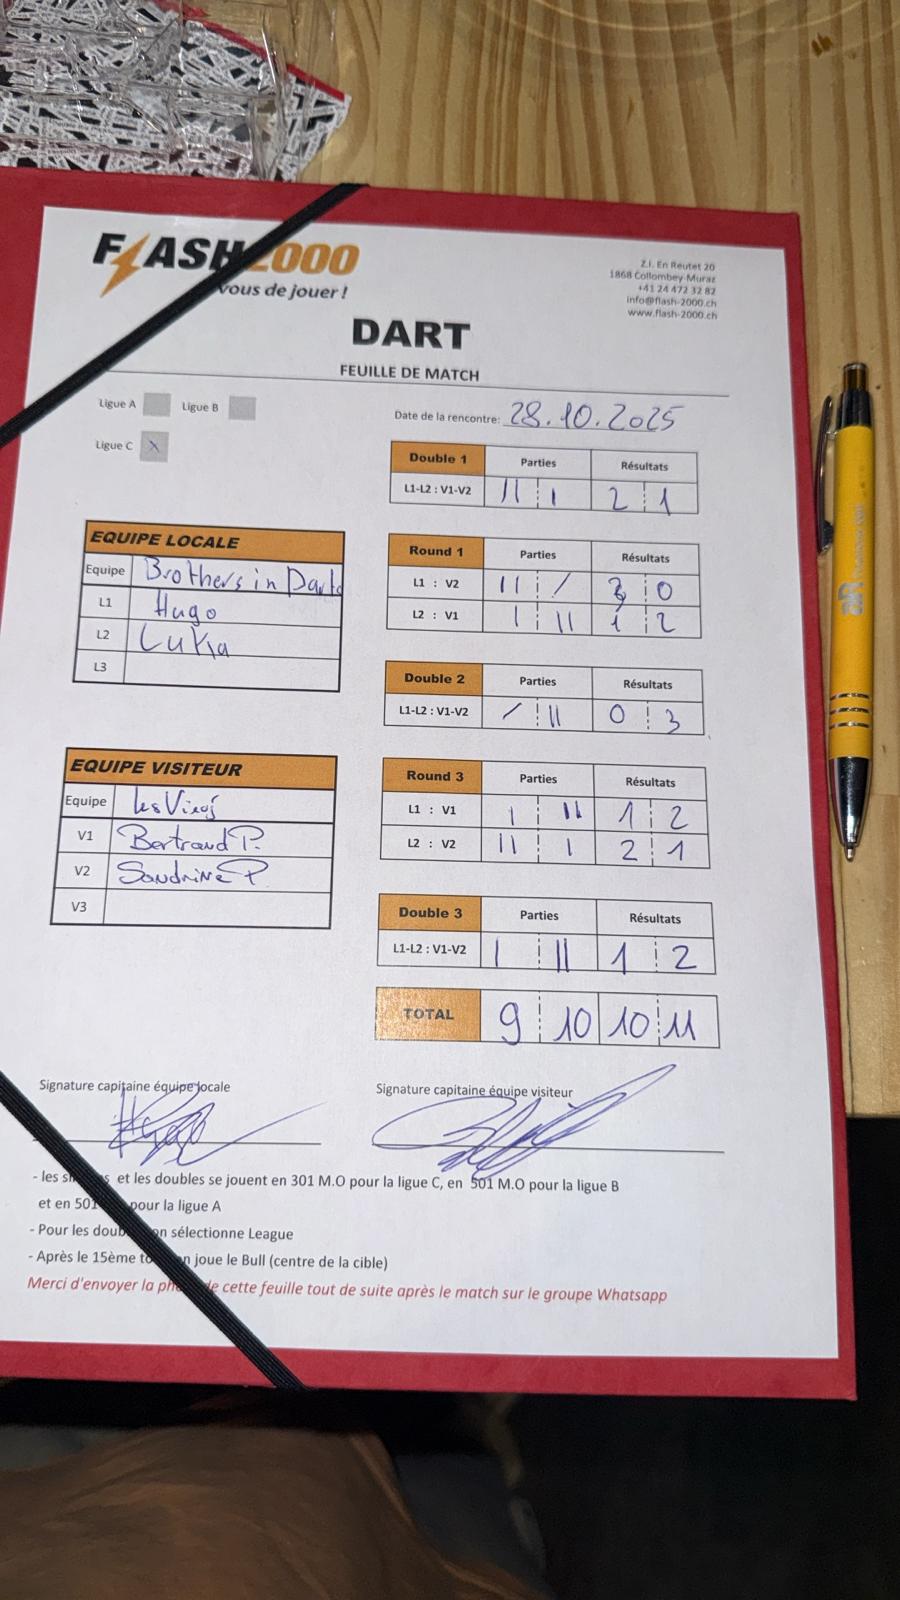 FLASH2000
vous de jouer !
Z.I. En Reutet 20
1868 Collombey-Muraz
+41 24 472 32 82
info@flash-2000.ch
www.flash-2000.ch
DART
FEUILLE DE MATCH
Ligue A Ligue B
Ligue C X
Date de la rencontre: 28.10.2025
Double 1 Parties Résultats
L1-L2 : V1-V2 II I 2 1
EQUIPE LOCALE
Equipe Brothers in Darts
L1 Hugo
L2 Luka
L3
Round 1 Parties Résultats
L1 : V2 II / 3 0
L2 : V1 I II 1 2
Double 2 Parties Résultats
L1-L2 : V1-V2 / II 0 3
EQUIPE VISITEUR
Equipe Les
V1 Bertrand P.
V2 Sandrine P.
V3
Round 3 Parties Résultats
L1 : V1 I II 1 2
L2 : V2 II I 2 1
Double 3 Parties Résultats
L1-L2 : V1-V2 I II 1 2
TOTAL 9 10 10 11
Signature capitaine équipe locale
Signature capitaine équipe visiteur
- les et les doubles se jouent en 301 M.O pour la ligue C, en 501 M.O pour la ligue B
et en 501 pour la ligue A
- Pour les on sélectionne League
- Après le 15ème joue le Bull (centre de la cible)
Merci d'envoyer la de cette feuille tout de suite après le match sur le groupe Whatsapp